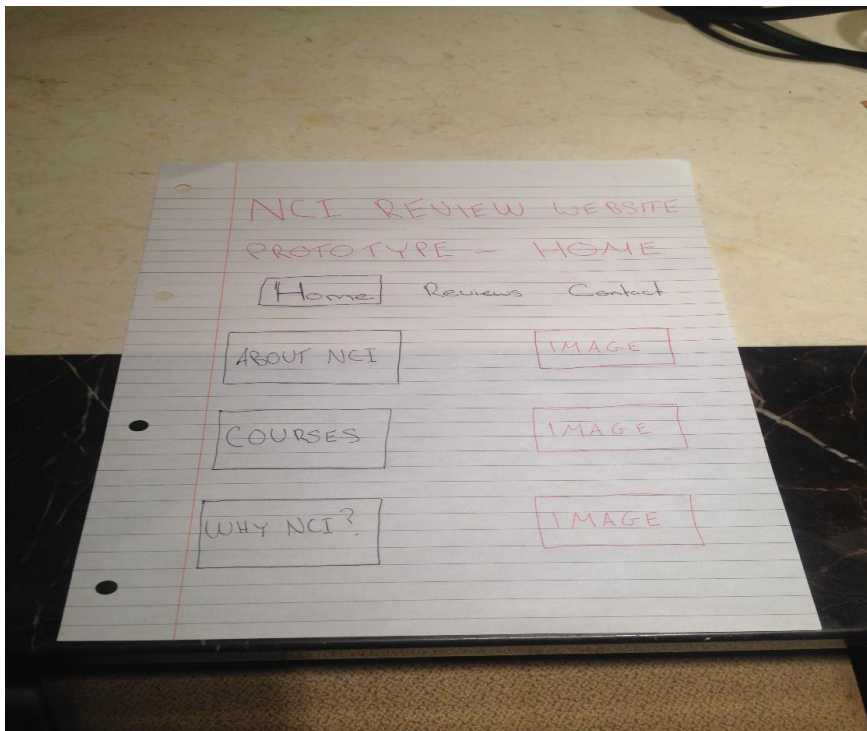 NCI REVIEW WEBSITE
PROTOTYPE - HOME
Home Reviews Contact
ABOUT NCI IMAGE
COURSES IMAGE
WHY NCI? IMAGE